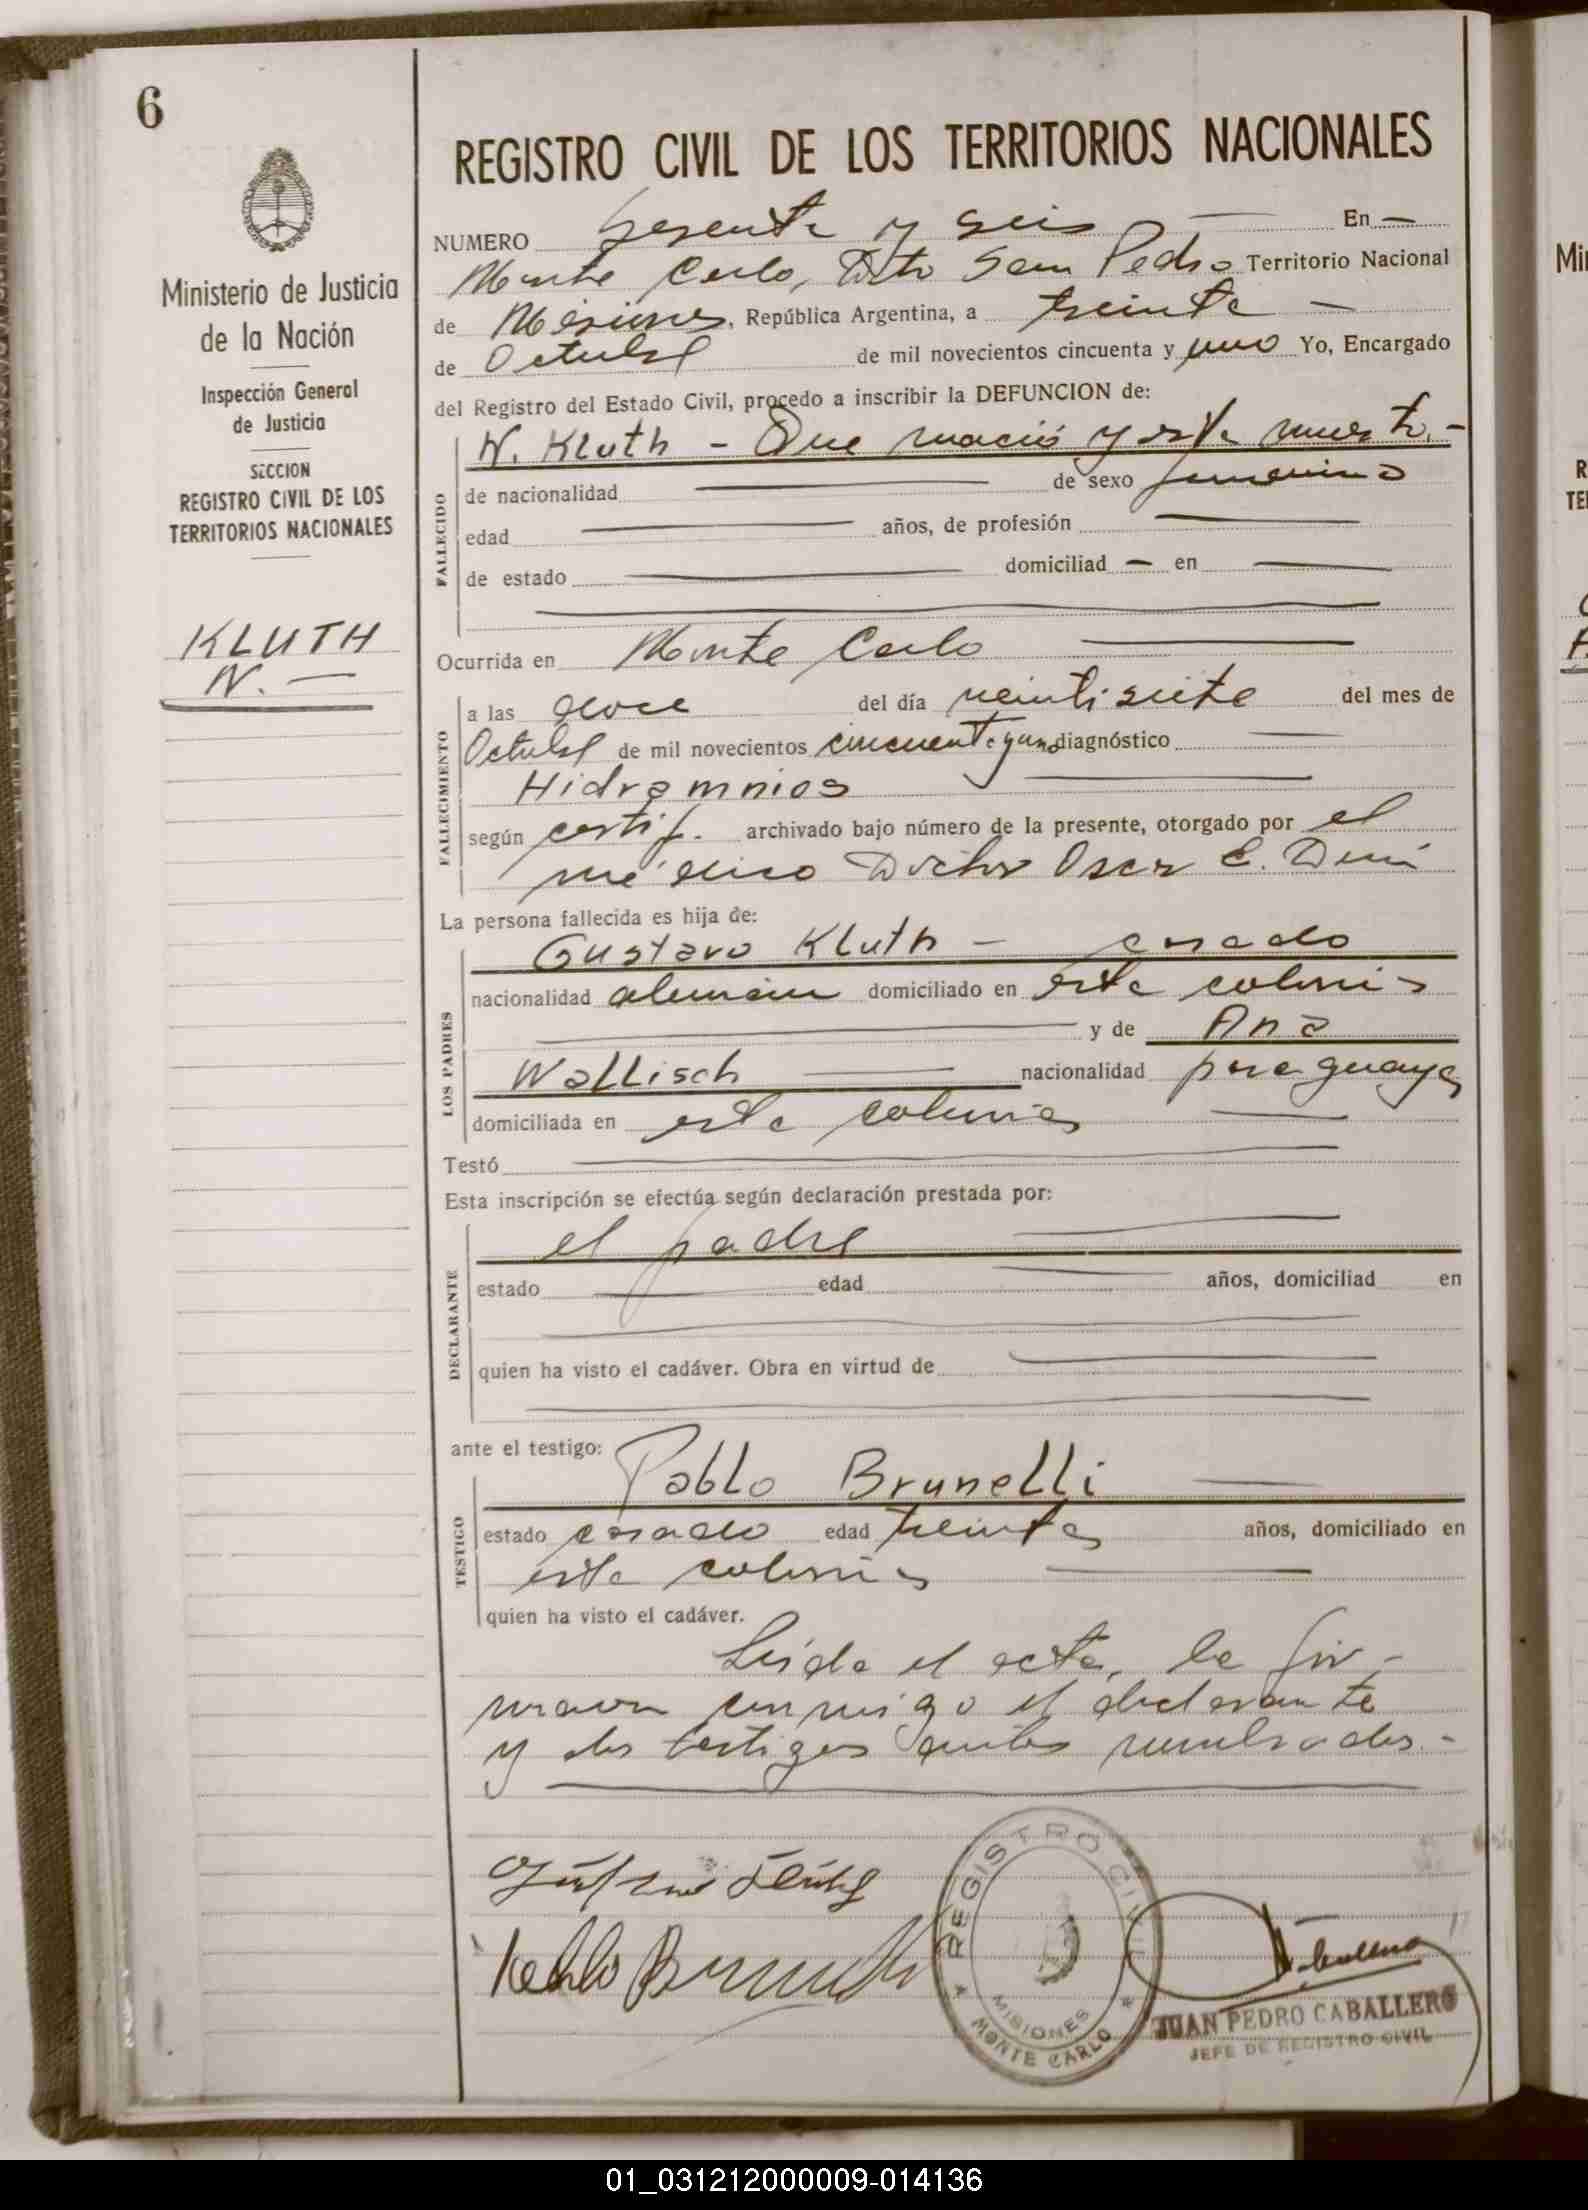 6
REGISTRO CIVIL DE LOS TERRITORIOS NACIONALES
Ministerio de Justicia
de la Nación
Inspección General
de Justicia
SECCION
REGISTRO CIVIL DE LOS
TERRITORIOS NACIONALES
KLUTH
N. —
NUMERO Sesenta y seis — En —
Monte Carlo, Dto San Pedro Territorio Nacional
de Misiones, República Argentina, a treinta —
de Octubre de mil novecientos cincuenta y uno Yo, Encargado
del Registro del Estado Civil, procedo a inscribir la DEFUNCION de:
FALLECIDO
N. Kluth - Que nació y está muerta.-
de nacionalidad — de sexo femenino
edad — años, de profesión —
de estado — domiciliad — en —
Ocurrida en Monte Carlo —
FALLECIMIENTO
a las doce del día veintisiete del mes de
Octubre de mil novecientos cincuenta y uno diagnóstico —
Hidramnios —
según certif. archivado bajo número de la presente, otorgado por el
médico Doctor Oscar E.
La persona fallecida es hija de:
LOS PADRES
Gustavo Kluth - casado
nacionalidad alemán domiciliado en esta colonia
— y de Ana
Wallisch — nacionalidad paraguaya
domiciliada en esta colonia —
Testó —
Esta inscripción se efectúa según declaración prestada por:
DECLARANTE
el padre —
estado — edad — años, domiciliad en
quien ha visto el cadáver. Obra en virtud de —
ante el testigo:
TESTIGO
Pablo Brunelli —
estado casado edad treinta años, domiciliado en
esta colonia —
quien ha visto el cadáver.
Leída el acta, la fir-
maron conmigo el declarante
y los testigos antes nombrados.-
Pablo Brunelli
REGISTRO CIVIL
MISIONES
MONTE CARLO
JUAN PEDRO CABALLERO
JEFE DE REGISTRO CIVIL
01_031212000009-014136